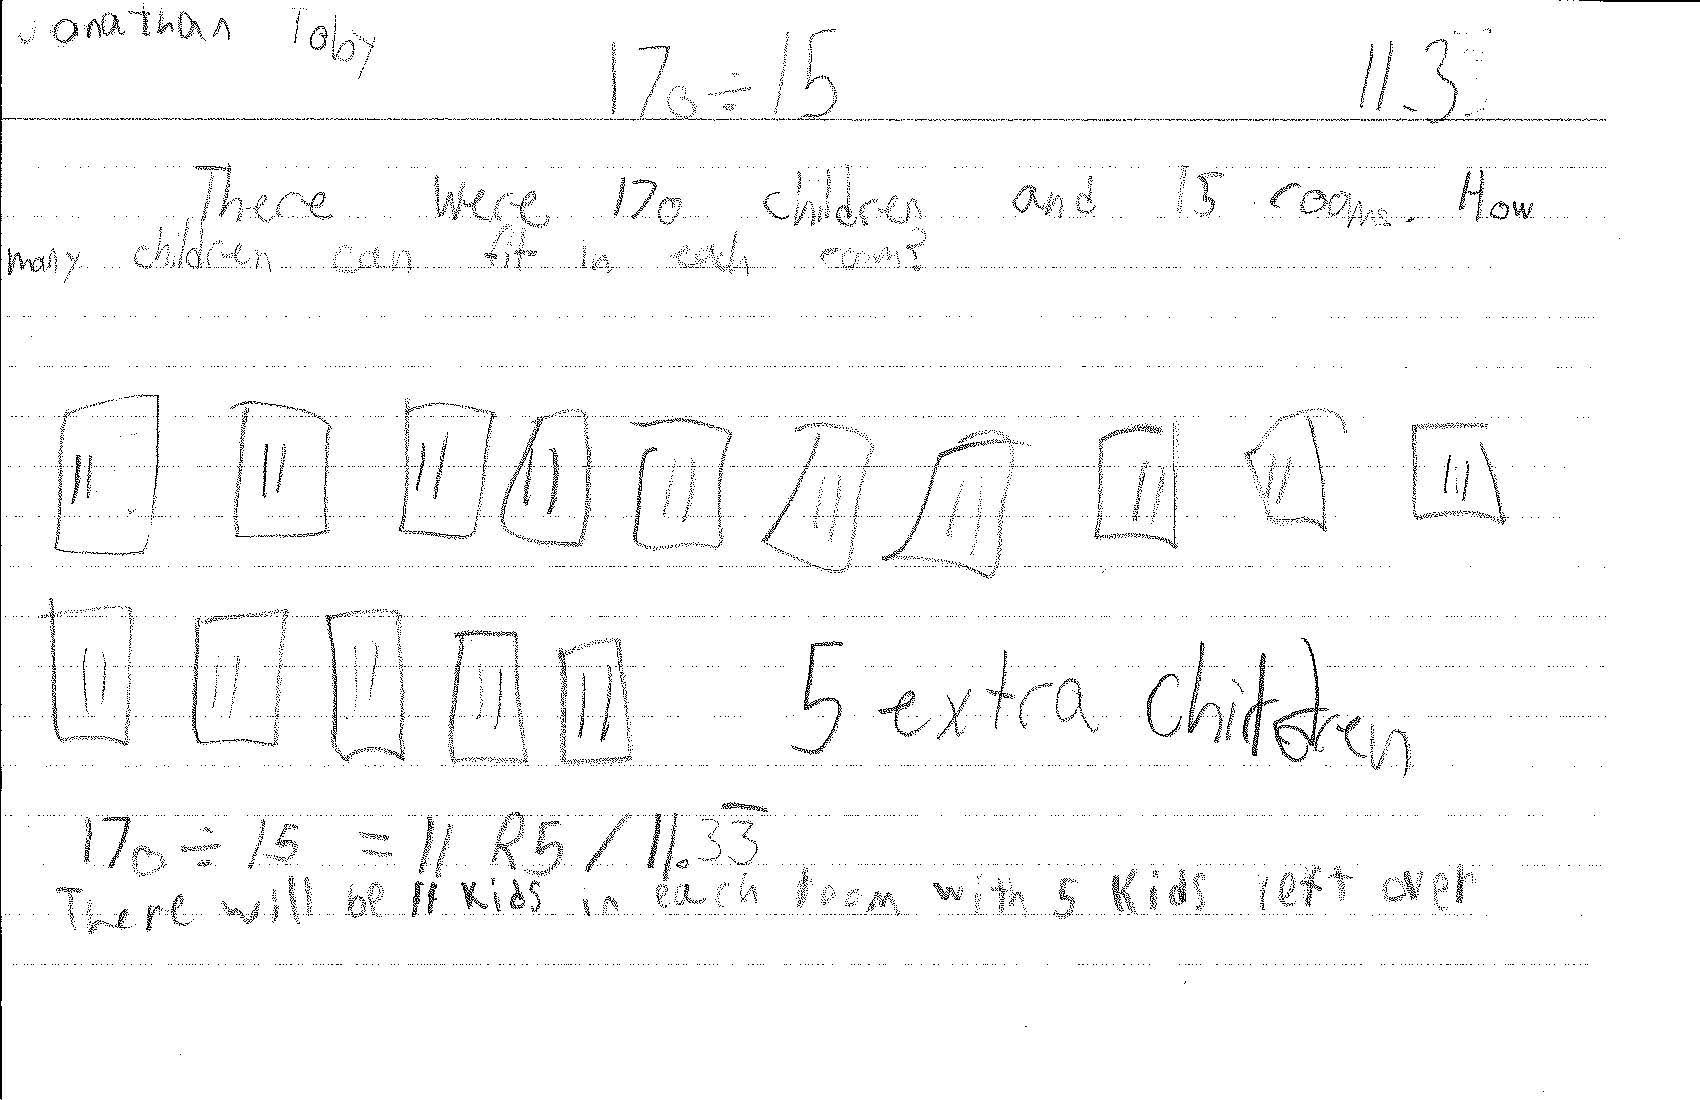 Jonathan Toby
170 ÷ 15 11.3
There were 170 children and 15 rooms. How
many children can fit in each room?
11 11 11 11 11 11 11 11 11 11
11 11 11 11 11 5 extra children
170 ÷ 15 = 11 R5 / 11.33̅
There will be 11 kids in each room with 5 kids left over